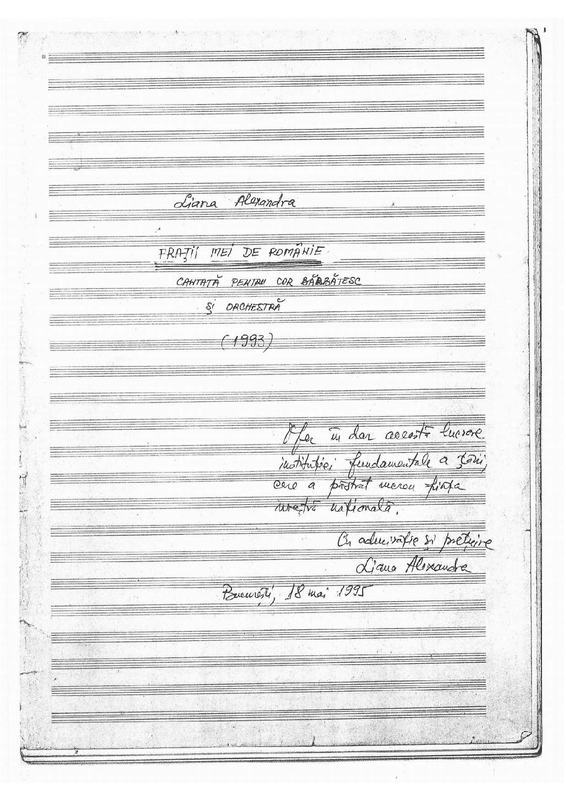 Liana Alexandra
FRAȚII MEI DE ROMÂNIE
CANTATĂ PENTRU COR BĂRBĂTESC
ȘI ORCHESTRĂ
(1993)
Ofer în dar această lucrare
instituției fundamentale a țării,
care a păstrat mereu ființa
noastră națională.
Cu admirație și prețuire
Liana Alexandra
București, 18 mai 1995